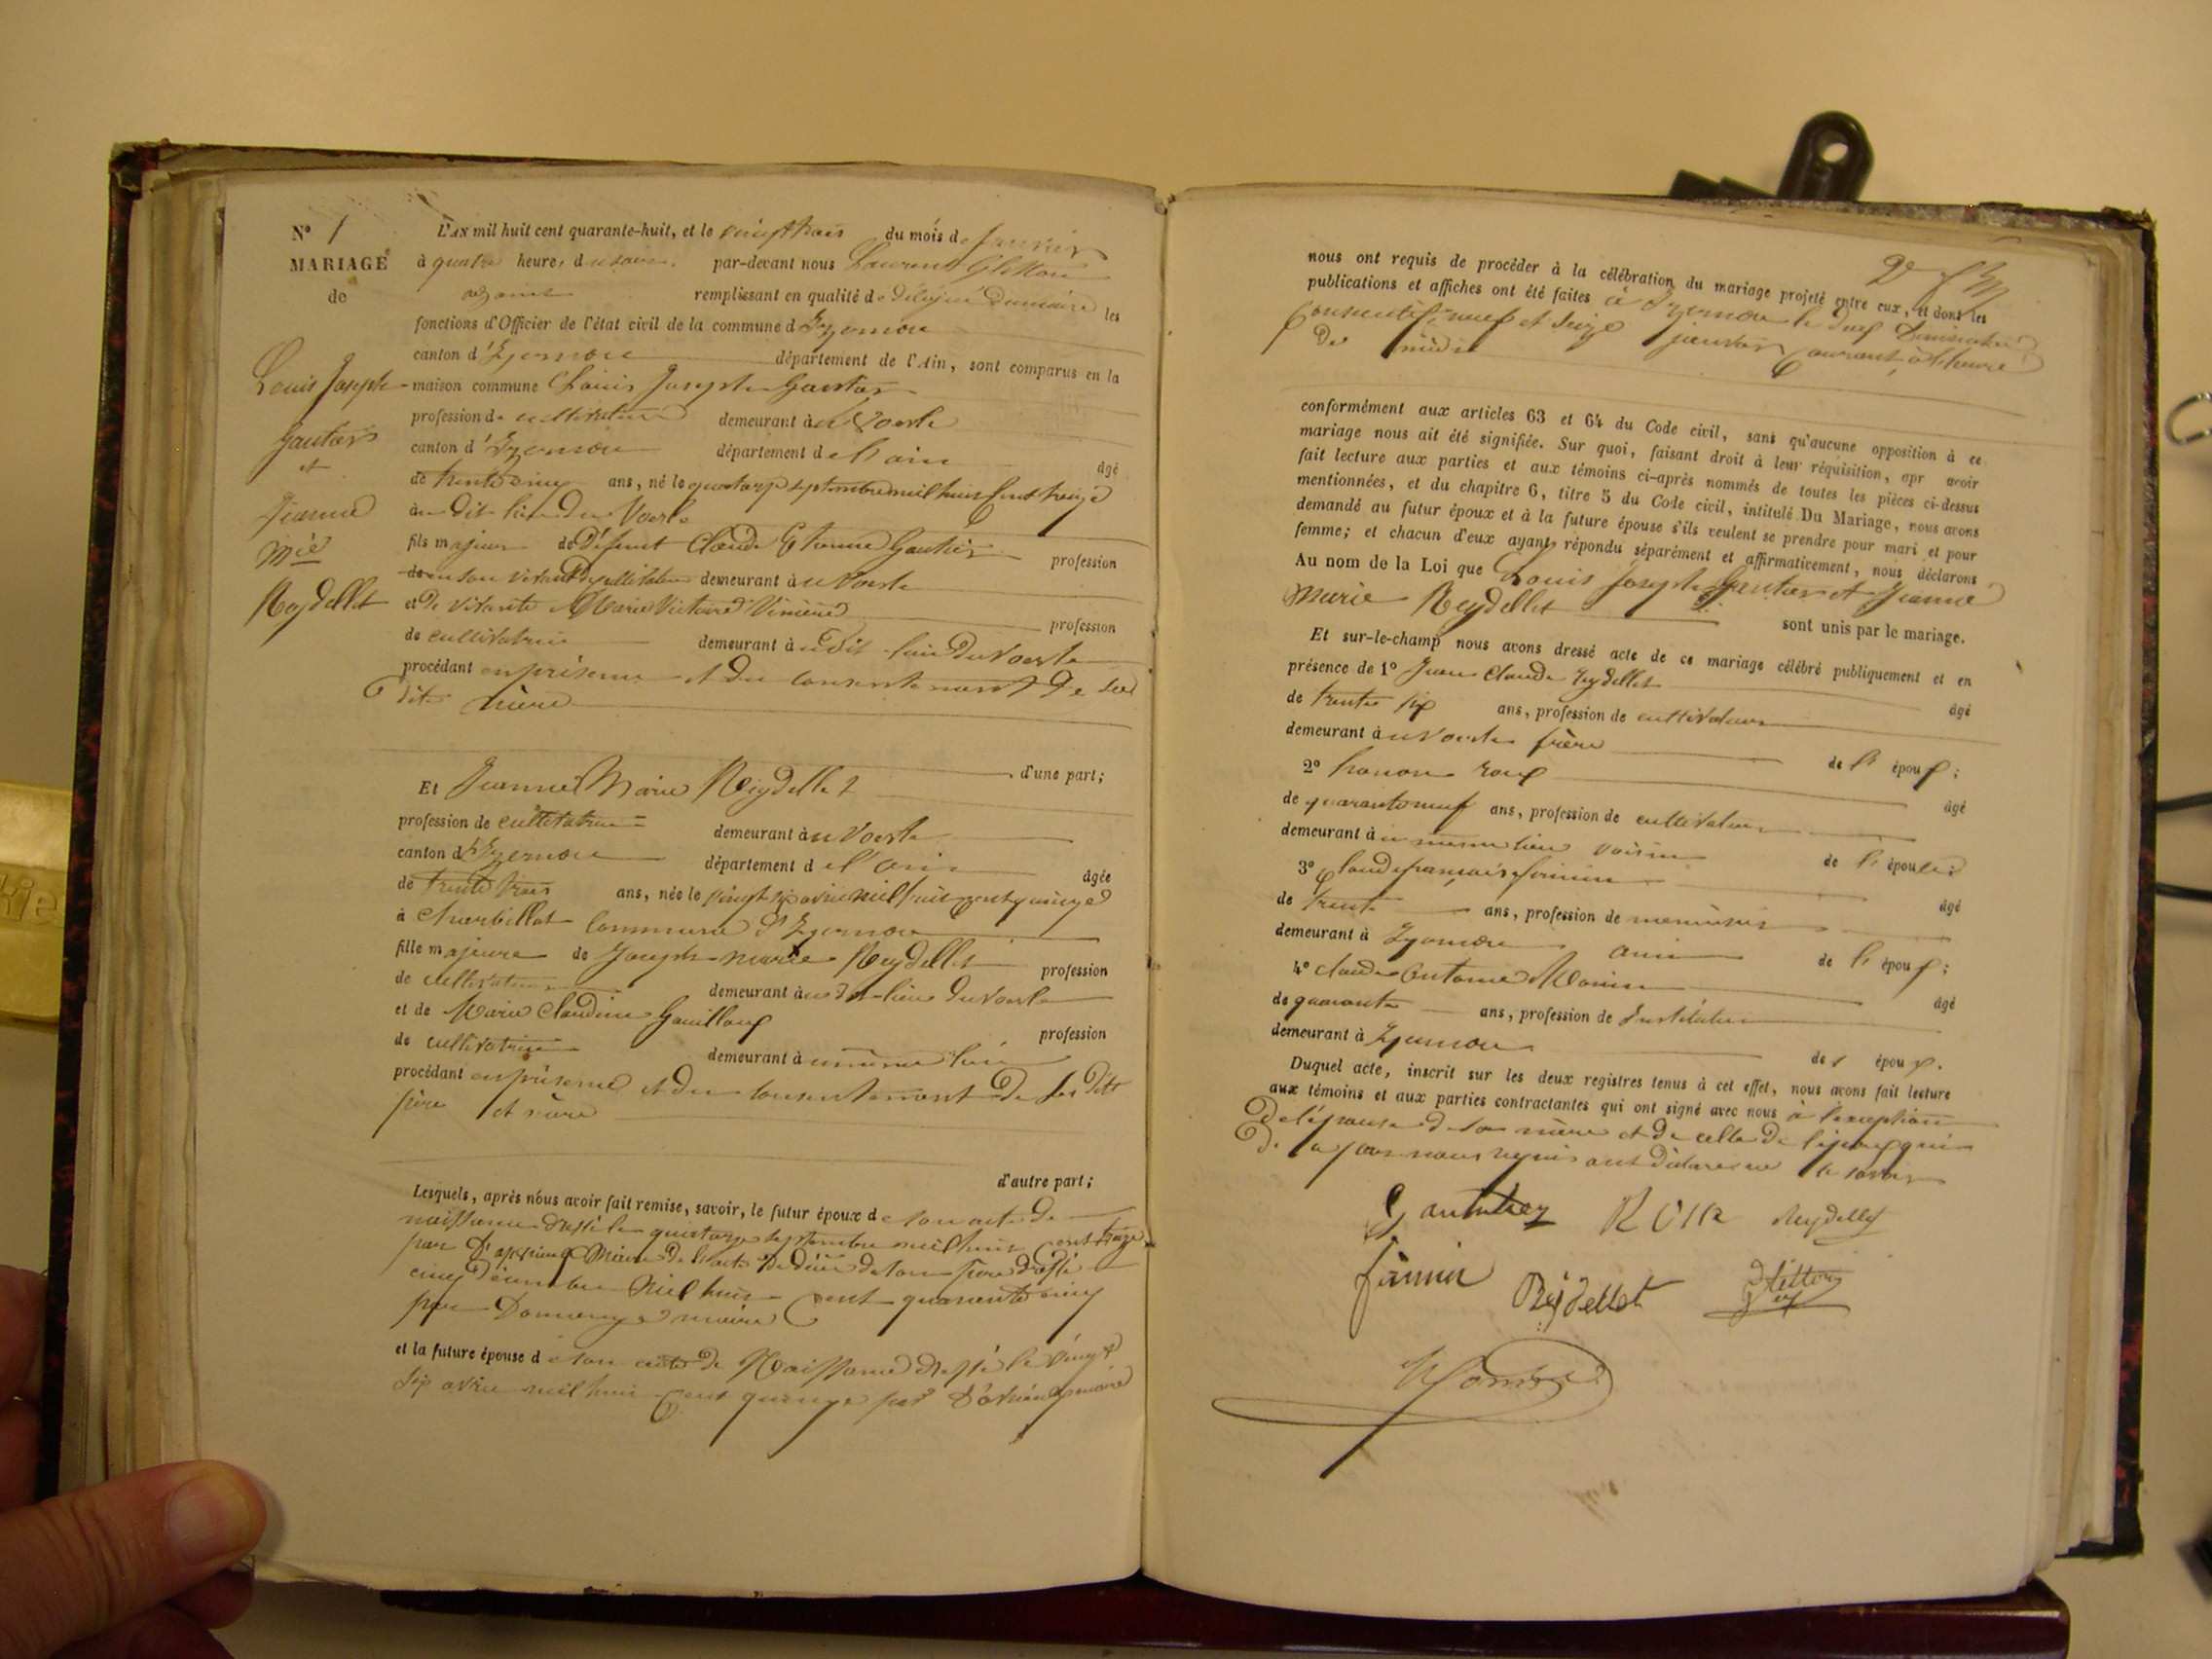 N° 1
MARIAGE
de
Louis Joseph
Gautier
et
Jeanne
Mie
Reydellet
L'AN mil huit cent quarante-huit, et le vingt trois du mois de janvier
à quatre heures du soir par-devant nous Laurent
adjoint remplissant en qualité de délégué du maire les
fonctions d'Officier de l'état civil de la commune d'Izernore
canton d'Izernore département de l'Ain, sont comparus en la
maison commune Louis Joseph Gautier
profession de cultivateur demeurant au Voerle
canton d'Izernore département de l'ain âgé
de trente cinq ans, né le quatorze septembre mil huit cent treize
au dit lieu du Voerle
fils majeur de Défunt Claude Etienne Gautier profession
de en son vivant de cultivateur demeurant au Voerle
et De vivante Marie Victoire profession
de cultivatrice demeurant au dit lieu du Voerle
procédant en présence et du consentement de sa
dite mère
d'une part;
Et Jeanne Marie Reydellet
profession de cultivatrice demeurant au Voerle
canton d'Izernore département de l'ain âgée
de trente trois ans, née le vingt six avril mil huit cent quinze
à Charbillat commune d'Izernore
fille majeure de Joseph marie Reydellet profession
de cultivateur demeurant au dit lieu du Voerle
et de Marie Claudine Gouilloux profession
de cultivatrice demeurant à même lieu
procédant en présence et du consentement de ses dits
père et mère
d'autre part;
Lesquels, après nous avoir fait remise, savoir, le futur époux de son acte de
naissance dressé le quatorze septembre mil huit cent treize
par maire de l'acte de décès de son père dressé le
cinq Décembre mil huit cent quarante cinq
par Domenge maire
et la future épouse de son acte de Naissance dressé le vingt
six avril mil huit cent quinze par maire
nous ont requis de procéder à la célébration du mariage projeté entre eux, et dont les
publications et affiches ont été faites à Izernore le deux Dimanches
consecutifs neuf et seize janvier courant à l'heure
de midi
conformément aux articles 63 et 64 du Code civil, sans qu'aucune opposition à ce
mariage nous ait été signifiée. Sur quoi, faisant droit à leur réquisition, apr avoir
fait lecture aux parties et aux témoins ci-après nommés de toutes les pièces ci-dessus
mentionnées, et du chapitre 6, titre 5 du Code civil, intitulé Du Mariage, nous avons
demandé au futur époux et à la future épouse s'ils veulent se prendre pour mari et pour
femme; et chacun d'eux ayant répondu séparément et affirmativement, nous déclarons
Au nom de la Loi que Louis Joseph Gautier et Jeanne
Marie Reydellet sont unis par le mariage.
Et sur-le-champ nous avons dressé acte de ce mariage célébré publiquement et en
présence de 1° Jean Claude Reydellet âgé
de trente six ans, profession de cultivateur
demeurant au Voerle frère de l' époux;
2° honoré roux âgé
de quarante neuf ans, profession de cultivateur
demeurant à u même lieu voisin de l' épouse;
3° Claude françois âgé
de trente ans, profession de menuisier
demeurant à Izernore ami de l' époux;
4° Claude Antoine Monin âgé
de quarante ans, profession de Instituteur
demeurant à Izernore de l' époux.
Duquel acte, inscrit sur les deux registres tenus à cet effet, nous avons fait lecture
aux témoins et aux parties contractantes qui ont signé avec nous à l'exception
De l'épouse de sa mère et de celle de l'époux qui
De ce par nous requis ont déclaré ne le savoir
Gauthier Reydellet
Reydellet